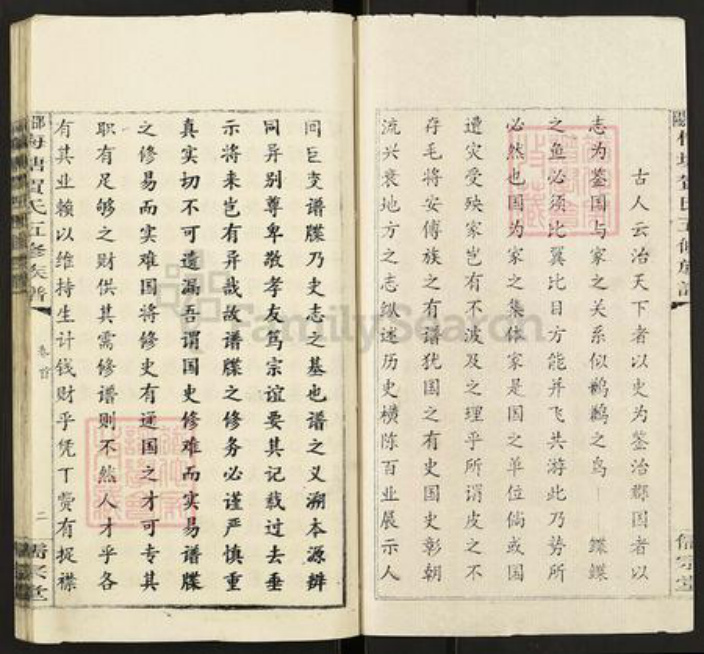 古人云治天下者以史为鉴治郡国者以
志为鉴国与家之关系似鹣鹣之鸟——鲽鲽
之鱼必须比翼比目方能并飞共游此乃势所
必然也国为家之集体家是国之单位倘或国
遭灾受殃家岂有不波及之理乎所谓皮之不
存毛将安傅族之有谱犹国之有史国史彰朝
流兴衰地方之志纵述历史横陈百业展示人
同巨变谱牒乃史志之基也谱之义溯本源辨
同异别尊卑敬孝友笃宗谊要其记载过去垂
示将来岂有异哉故谱牒之修务必谨严慎重
真实切不可遗漏吾谓国史修难而实易谱牒
之修易而实难国将修史有通国之才可专其
职有足够之财供其需修谱则不然人才乎各
有其业赖以维持生计钱财乎凭丁费有捉襟
海塘贺氏五修族谱
卷首
二
FamilySearch